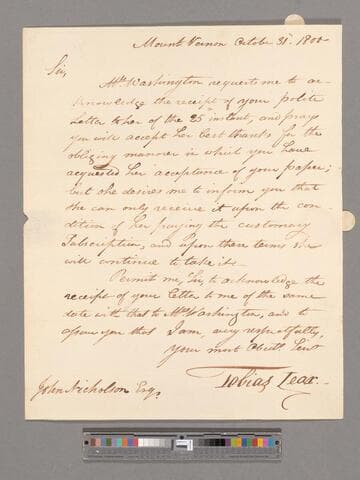 Mount Vernon October 31st 1800
Sir,
Mrs Washington requests me to ac-
knowledge the receipt of your polite
Letter to her of the 25 instant, and prays
you will accept her best thanks for the
obliging manner in which you have
requested her acceptance of your paper;
but she desires me to inform you that
she can only receive it upon the con-
dition of her paying the customary
Subscription, and upon these terms she
will continue to take it.
Permit me, Sir, to acknowledge the
receipt of your letter to me of the same
date with that to Mrs Washington, and to
assure you that I am, very respectfully,
Your most Obedt Servt
Tobias Lear.
John Nicholson Esqr